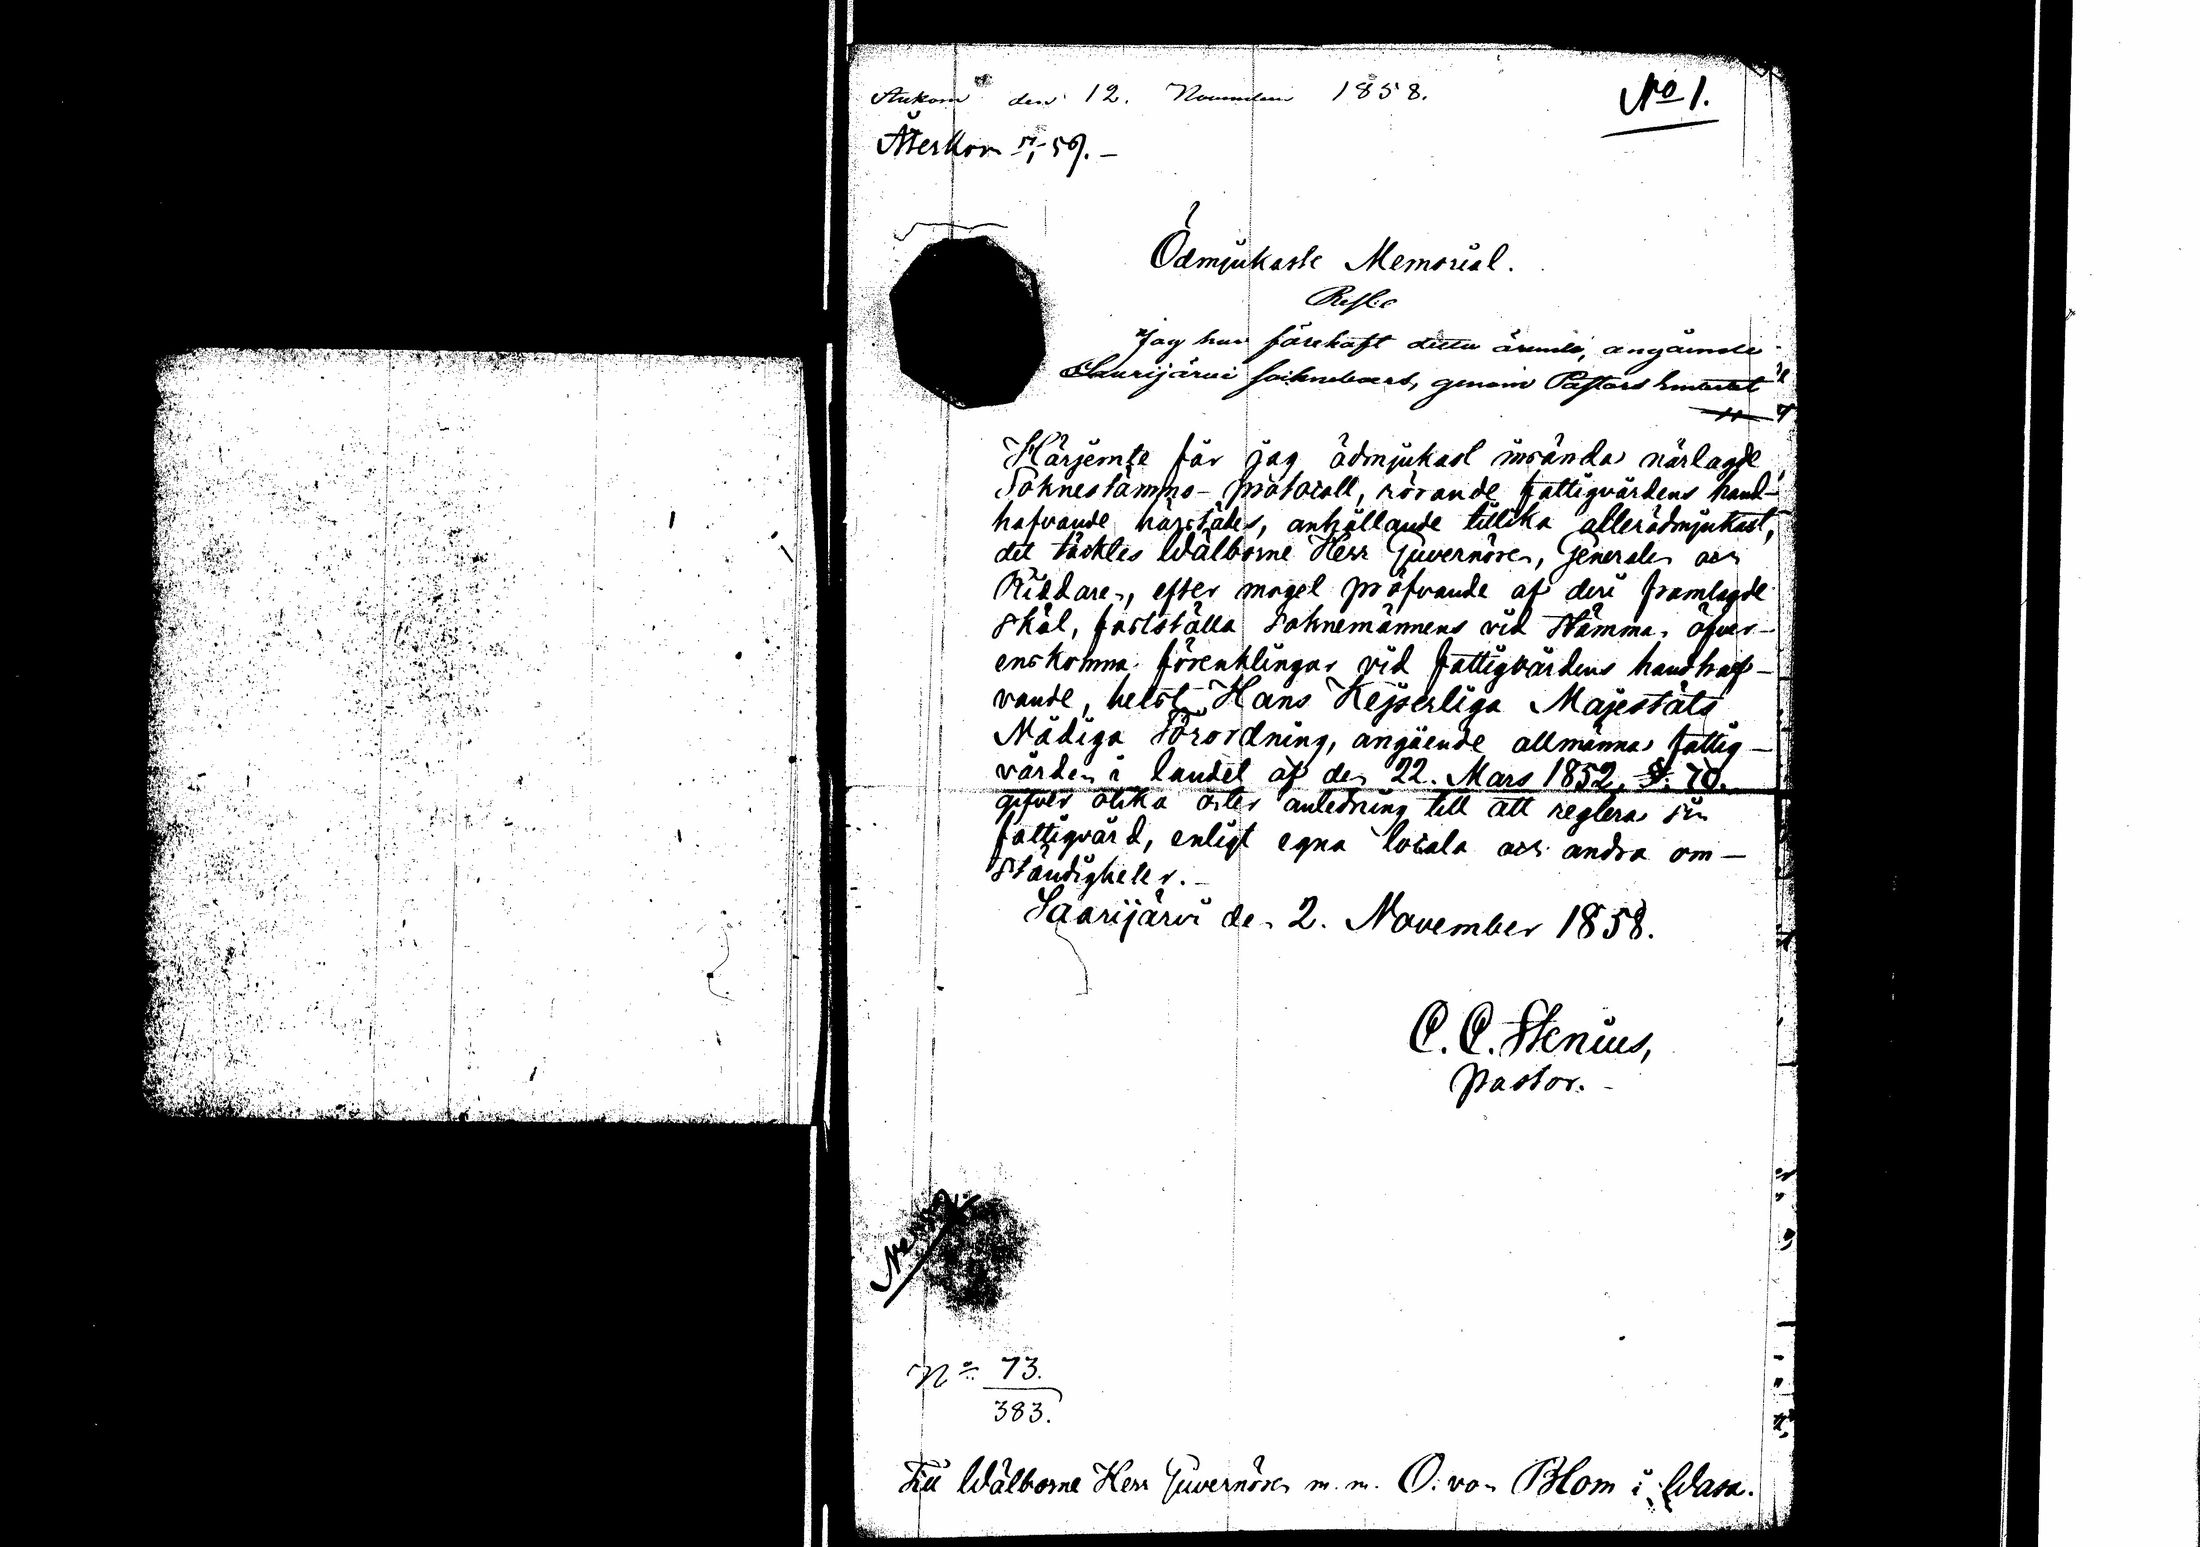 Ankom den 12. November 1858.
No 1.
Återkom 59.-
Ödmjukaste Memorial.
Resl:o
Jag har förehaft detta ärende, angående
Saarijärvi Sockneboers, genom Pastors
Härjemte får jag ödmjukast insända närlagde
Soknestämmo-protocoll, rörande fattigvårdens hand-
hafvande härstädes, anhållande tillika allerödmjukast,
det täcktes Wälborne Herr Guvernören, Generalen och
Riddaren, efter moget pröfvande af deri framlagde
skäl, fastställa Soknemännens vid Stämma öfver-
enskomna förenklingar vid fattigvårdens handhaf-
vande, helst Hans Kejserliga Majestäts
Nådiga Förordning, angående allmänna fattig-
vården i landet af den 22. Mars 1852, §. 70.
gifver olika orter anledning till att reglera sin
fattigvård, enligt egna locala och andra om-
ständigheter.-
Saarijärvi den 2. November 1858.
C. C. Stenius,
Pastor.-
No 73.
383.
Till Wälborne Herr Guvernören m. m. O. von Blom i Wasa.